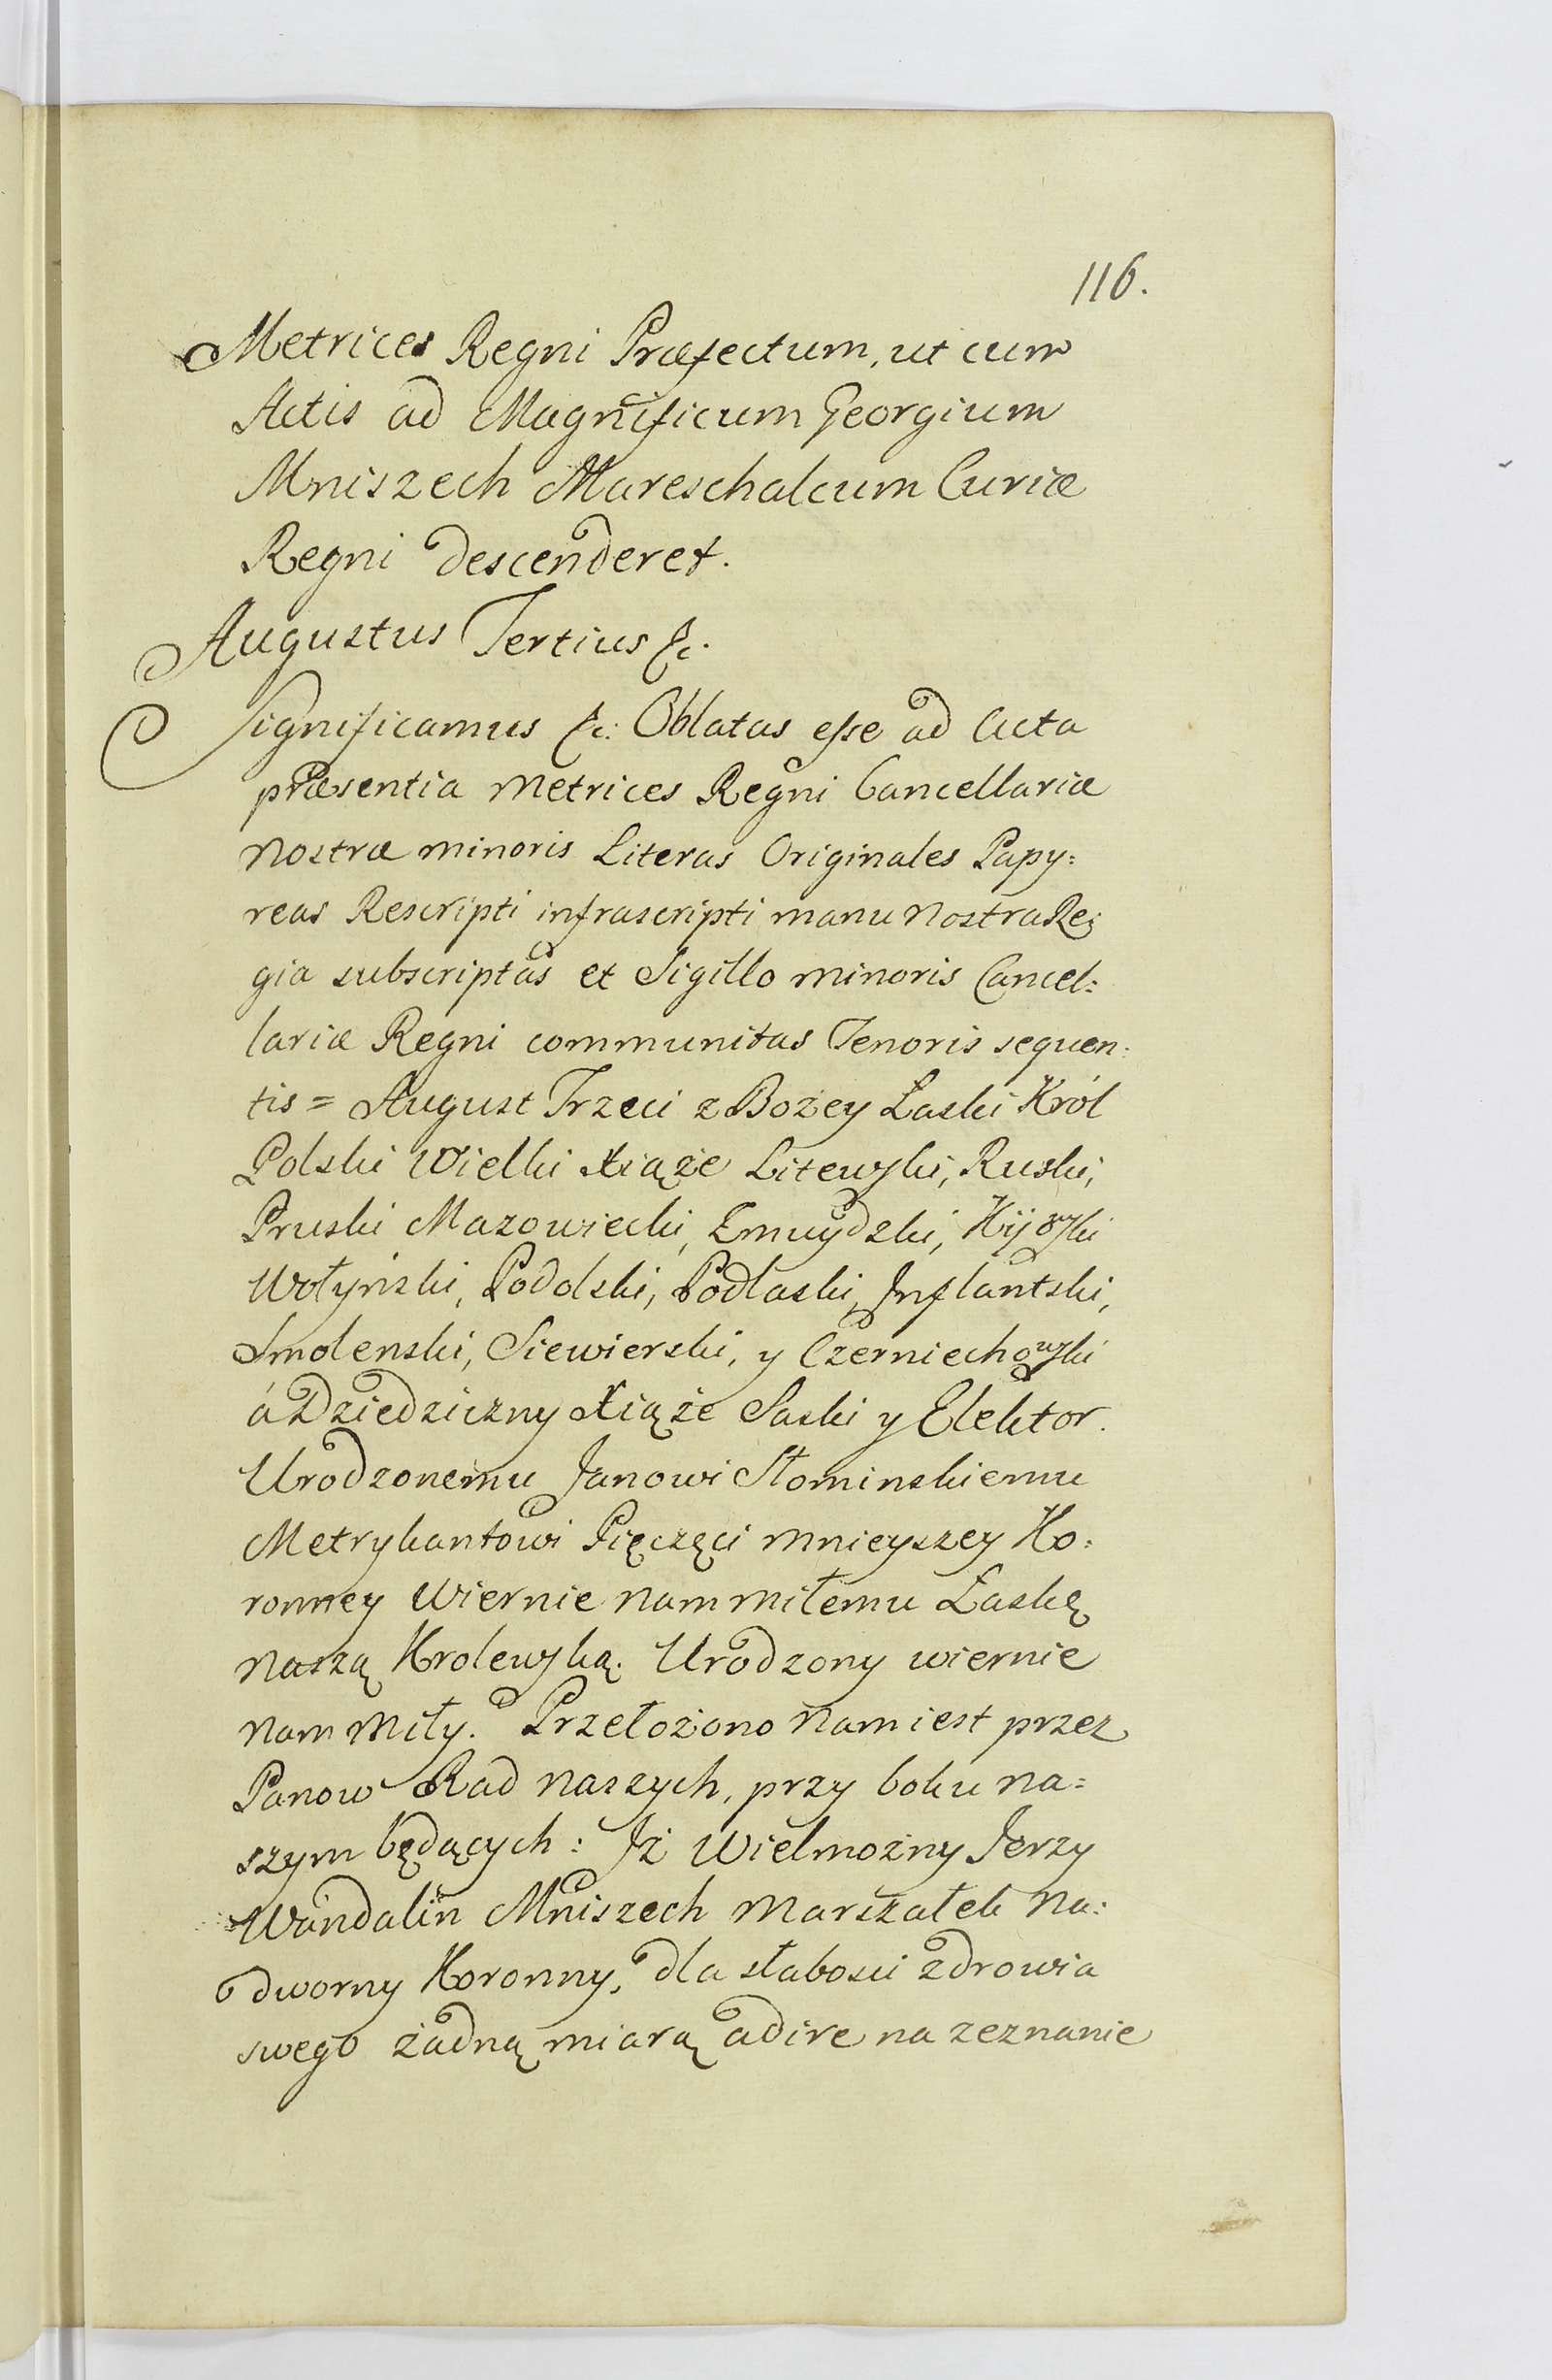 116.
Metrices Regni Præfectum, ut cum
Actis ad Magnificum Georgium
Mniszech Mareschalcum Curiæ
Regni descenderet.
Augustus Tertius &c.
Significamus &c: Oblatas esse ad Acta
præsentia Metrices Regni Cancellariæ
Nostræ minoris Literas Originales Papy:
reas Rescripti infrascripti manu Nostra Re:
gia subscriptas et Sigillo minoris Cancel:
lariæ Regni communitas Tenoris sequen:
tis = August Trzeci z Bożey Łaski Król
Polski Wielki Xiąże Litewski, Ruski,
Pruski Mazowiecki, Zmuydzki, Kijowski
Wołyński, Podolski, Podlaski, Inflantski,
Smolenski, Siewierski, y Czerniechowski
á Dziedziczny Xiąże Saski y Elektor.
Urodzonemu Janowi Słominskiemu
Metrykantowi Pięczęci mnieyszey Ko:
ronney Wiernie Nam miłemu Łaskę
Naszą Krolewską. Urodzony wiernie
Nam Miły. Przełożono Nam iest przez
Panow Rad Naszych, przy boku na=
szym będących: Iż Wielmożny Jerzy
Wandalin Mniszech Marszałek Na:
dworny Koronny, dla słabosci zdrowia
swego żadną miarą adire na zeznanie